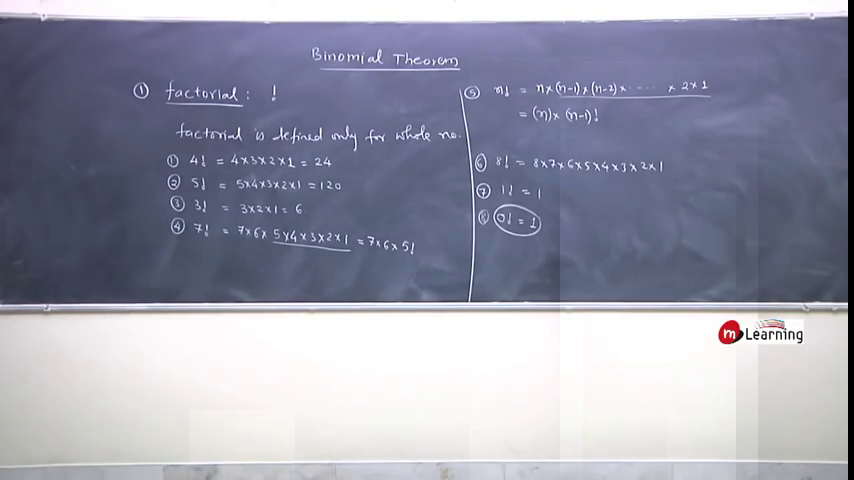 Binomial Theorem
① factorial : !
factorial is defined only for whole no.
① 4! = 4×3×2×1 = 24
② 5! = 5×4×3×2×1 = 120
③ 3! = 3×2×1 = 6
④ 7! = 7×6×5×4×3×2×1 = 7×6×5!
⑤ n! = n×(n-1)×(n-2)×.....×2×1
= (n)×(n-1)!
⑥ 8! = 8×7×6×5×4×3×2×1
⑦ 1! = 1
⑧ 0! = 1
m Learning